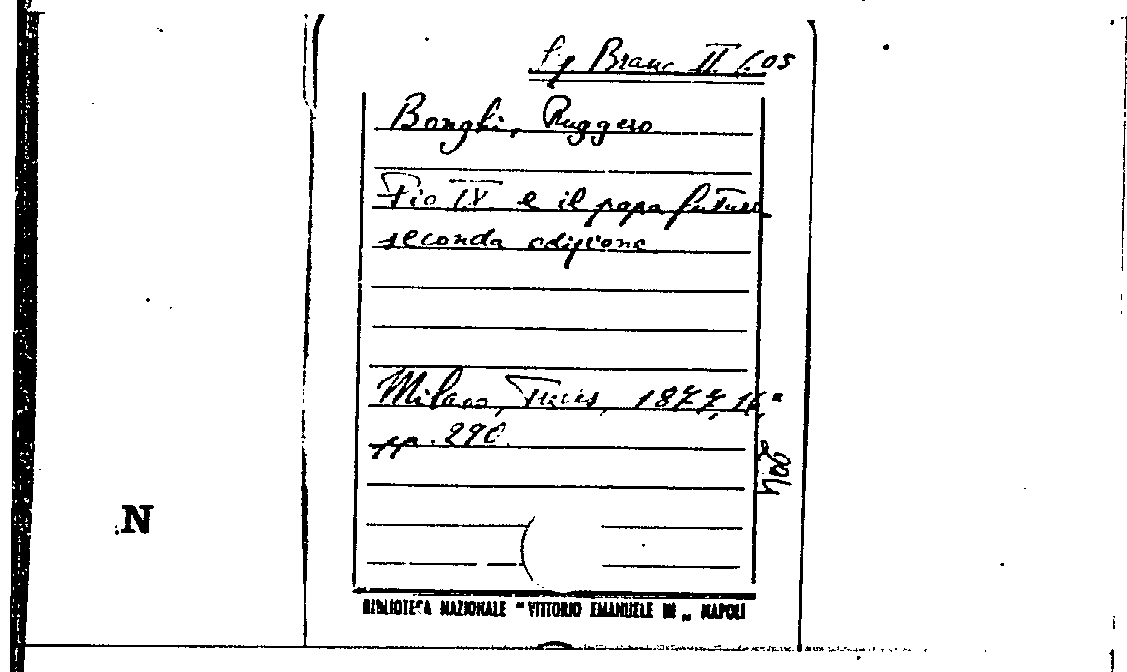 Bonghi, Ruggero
Pio IX e il papa futuro
seconda edizione
Milano, Treves, 1877, 16°
pp. 290.
N
BIBLIOTECA NAZIONALE "VITTORIO EMANUELE III" NAPOLI